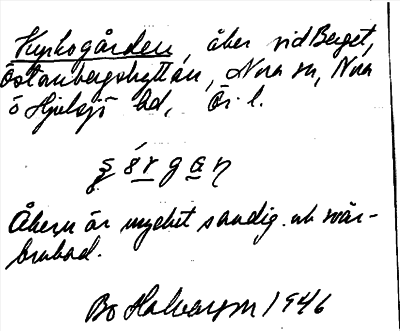 Kyrkogården, åker vid Berget,
Östanbergshyttan, Nora sn, Nora
o Hjulsjö bd, Ör. l.
Åkern är mycket sandig och svår-
brukad.
Bo Halvarson 1946